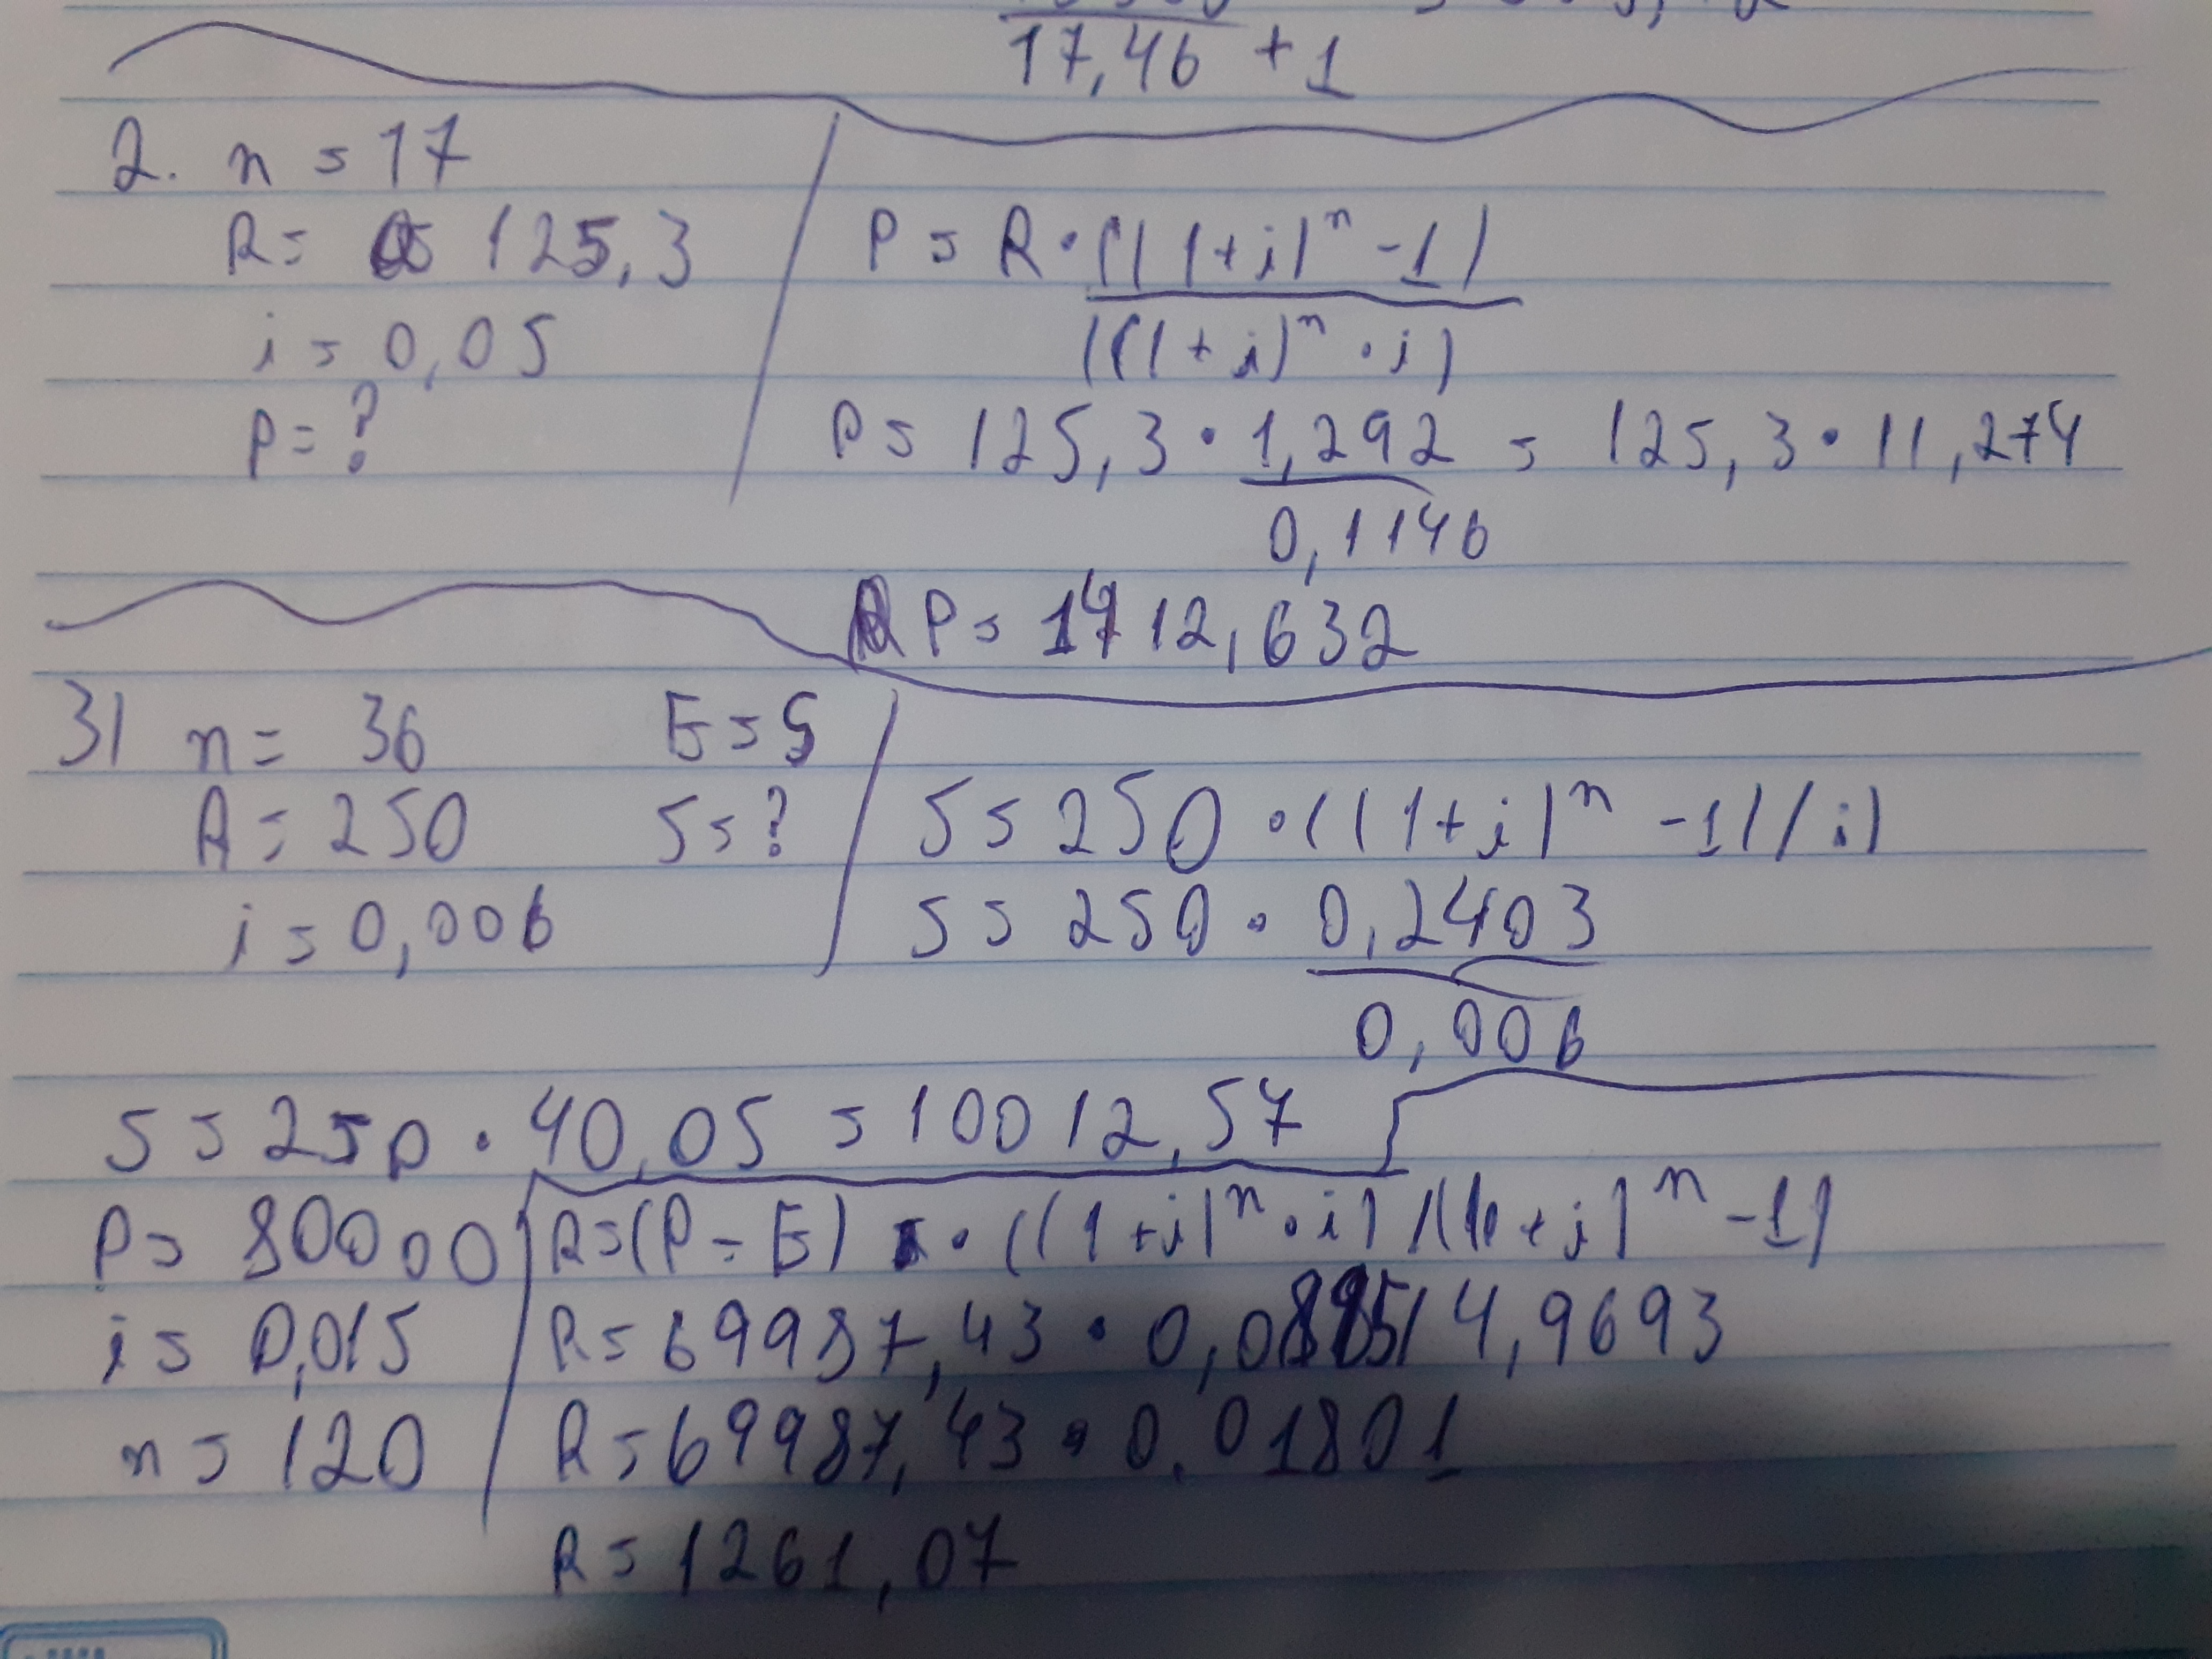 17,46 + 1
2. n = 17
R = 125,3
i = 0,05
P = ?
P = R · ((1+i)^n - 1)
((1+i)^n · i)
P = 125,3 · 1,292 = 125,3 · 11,274
0,1146
P = 1412,632
3) n = 36 E = S
R = 250 S = ?
i = 0,006
S = 250 · ((1+i)^n - 1)/i)
S = 250 · 0,2403
0,006
S = 250 · 40,05 = 10012,57
P = 80000
i = 0,015
n = 120
R = (P - E) · ((1+i)^n · i) /((1+i)^n - 1)
R = 69987,43 · 0,0895/4,9693
R = 69987,43 · 0,01801
R = 1261,07